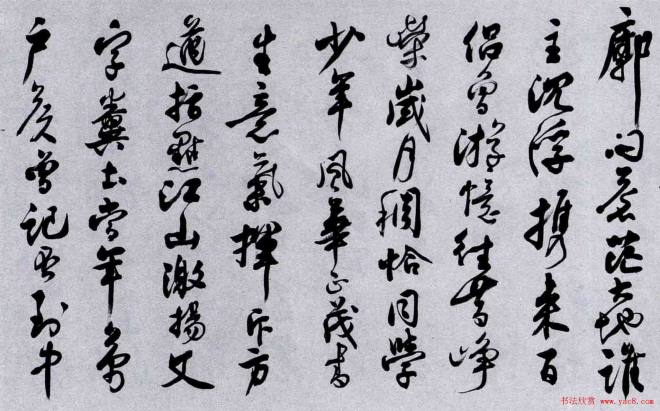 廓問蒼茫大地誰
主沉浮携来百
侶曾游憶往昔崢
嶸歲月稠恰同學
少年風華正茂書
生意氣揮斥方
遒指點江山激揚文
字糞土當年萬
户侯曾記否到中
书法欣赏 www.yac8.com